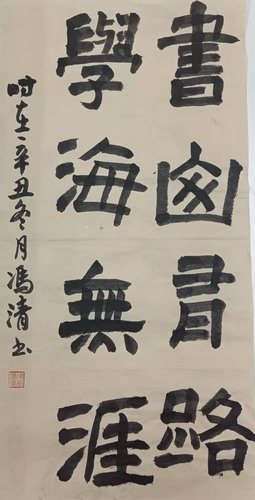 書山有路
學海無涯
时在辛丑冬月冯清书